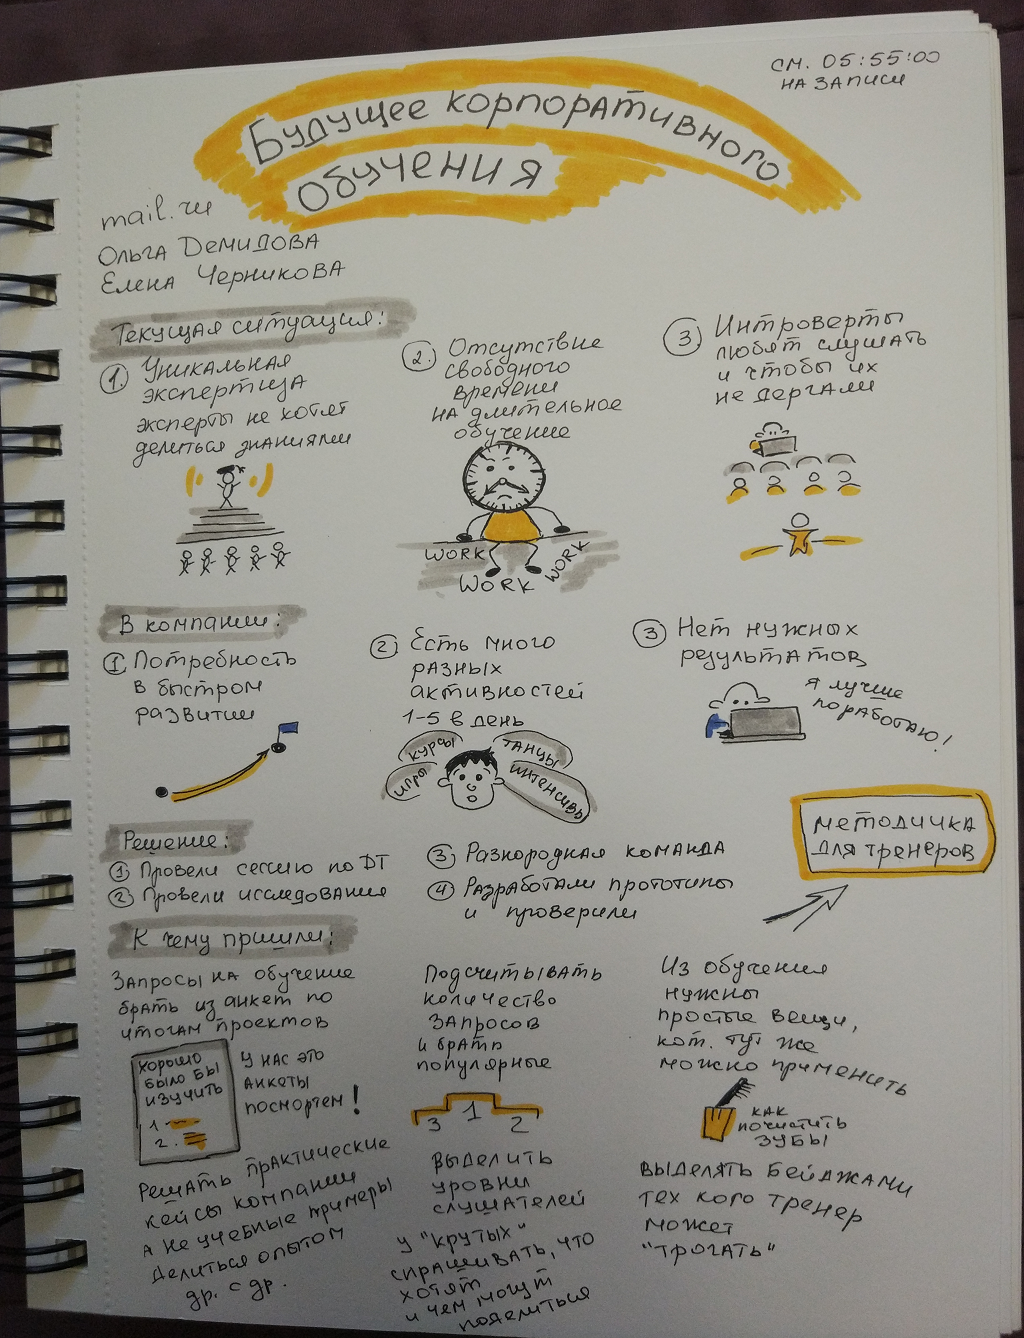 см. 05:55:00
на записи
Будущее корпоративного
обучения
mail.ru
Ольга Демидова
Елена Черникова
Текущая ситуация:
1. Уникальная
экспертиза
эксперты не хотят
делиться знаниями
2. Отсутствие
свободного
времени
на длительное
обучение
WORK
WORK
WORK
3 Интроверты
любят слушать
и чтобы их
не дергали
В компании:
1 Потребность
в быстром
развитии
2 Есть много
разных
активностей
1-5 в день
игры
курсы
танцы
интенсивы
3 Нет нужных
результатов
я лучше
поработаю!
Решение:
1 Провели сессию по DT
2 Провели исследования
3 Разнородная команда
4 Разработали прототипы
и проверили
методичка
для тренеров
К чему пришли:
Запросы на обучение
брать из анкет по
итогам проектов
хорошо
было бы
изучить
1
2.
у нас это
анкеты
посмортем!
Решать практические
кейсы компании
а не учебные примеры
Делиться опытом
др. с др.
Подсчитывать
количество
запросов
и брать
популярные
3 1 2
Выделить
уровни
слушателей
у "крутых"
спрашивать, что
хотят
и чем могут
поделиться
Из обучения
нужны
простые вещи,
кот. тут же
можно применить
как
почистить
зубы
Выделять бейджами
тех кого тренер
может
"трогать"